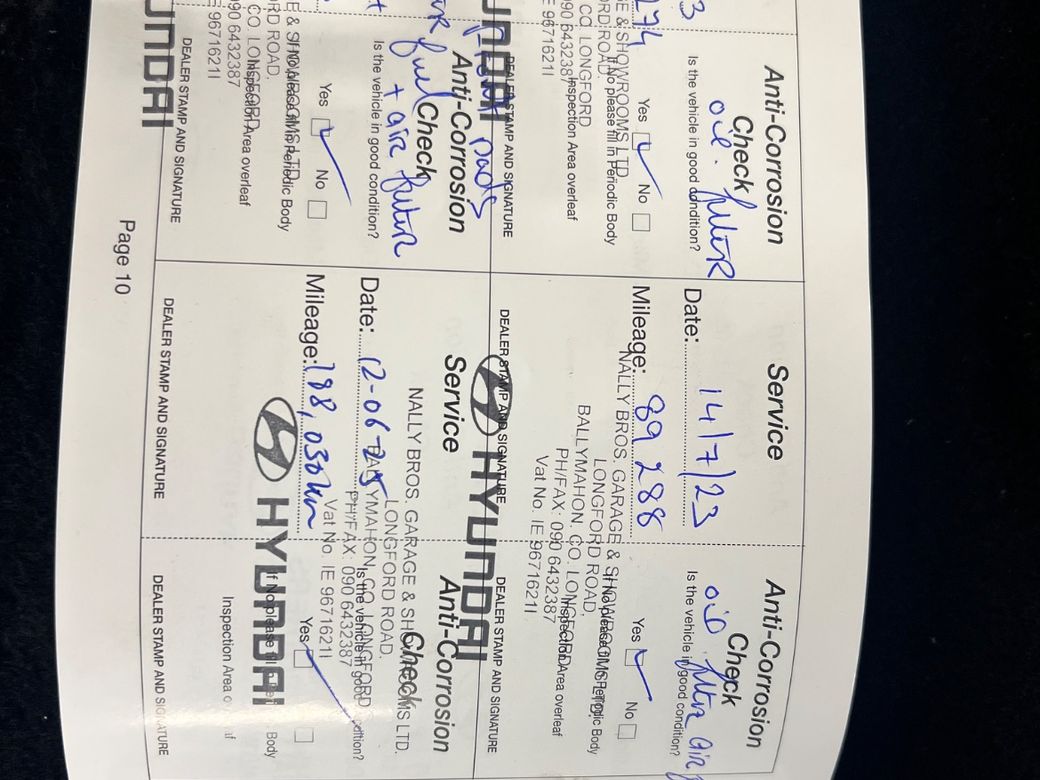 Anti-Corrosion
Check
oil. filter
Is the vehicle in good condition?
3
274
Yes No
If No please fill in Periodic Body
Inspection Area overleaf
E & SHOWROOMS LTD.
ORD ROAD,
CO. LONGFORD
090 6432387
E 9671621I
DEALER STAMP AND SIGNATURE
UNDAI
Service
Date: 14/7/23
Mileage: 89 288
NALLY BROS. GARAGE & SHOWROOMS LTD.
LONGFORD ROAD,
BALLYMAHON, CO. LONGFORD.
PH/FAX: 090 6432387
Vat No. IE 9671621I
DEALER STAMP AND SIGNATURE
HYUNDAI
Anti-Corrosion
Check
oil filter air
Is the vehicle in good condition?
Yes No
If No please fill in Periodic Body
Inspection Area overleaf
DEALER STAMP AND SIGNATURE
pads
Anti-Corrosion
Check
fuel
+ air filter
Is the vehicle in good condition?
Yes No
If No please fill in Periodic Body
Inspection Area overleaf
E & SHOWROOMS LTD.
ORD ROAD,
CO. LONGFORD
090 6432387
E 9671621I
DEALER STAMP AND SIGNATURE
UNDAI
Service
Date: 12-06-25
Mileage: 188,030km
NALLY BROS. GARAGE & SHOWROOMS LTD.
LONGFORD ROAD,
BALLYMAHON, CO. LONGFORD
PH/FAX: 090 6432387
Vat No. IE 9671621I
DEALER STAMP AND SIGNATURE
HYUNDAI
Anti-Corrosion
Check
Is the vehicle in good condition?
Yes
If No please fill in Body
Inspection Area
DEALER STAMP AND SIGNATURE
Page 10